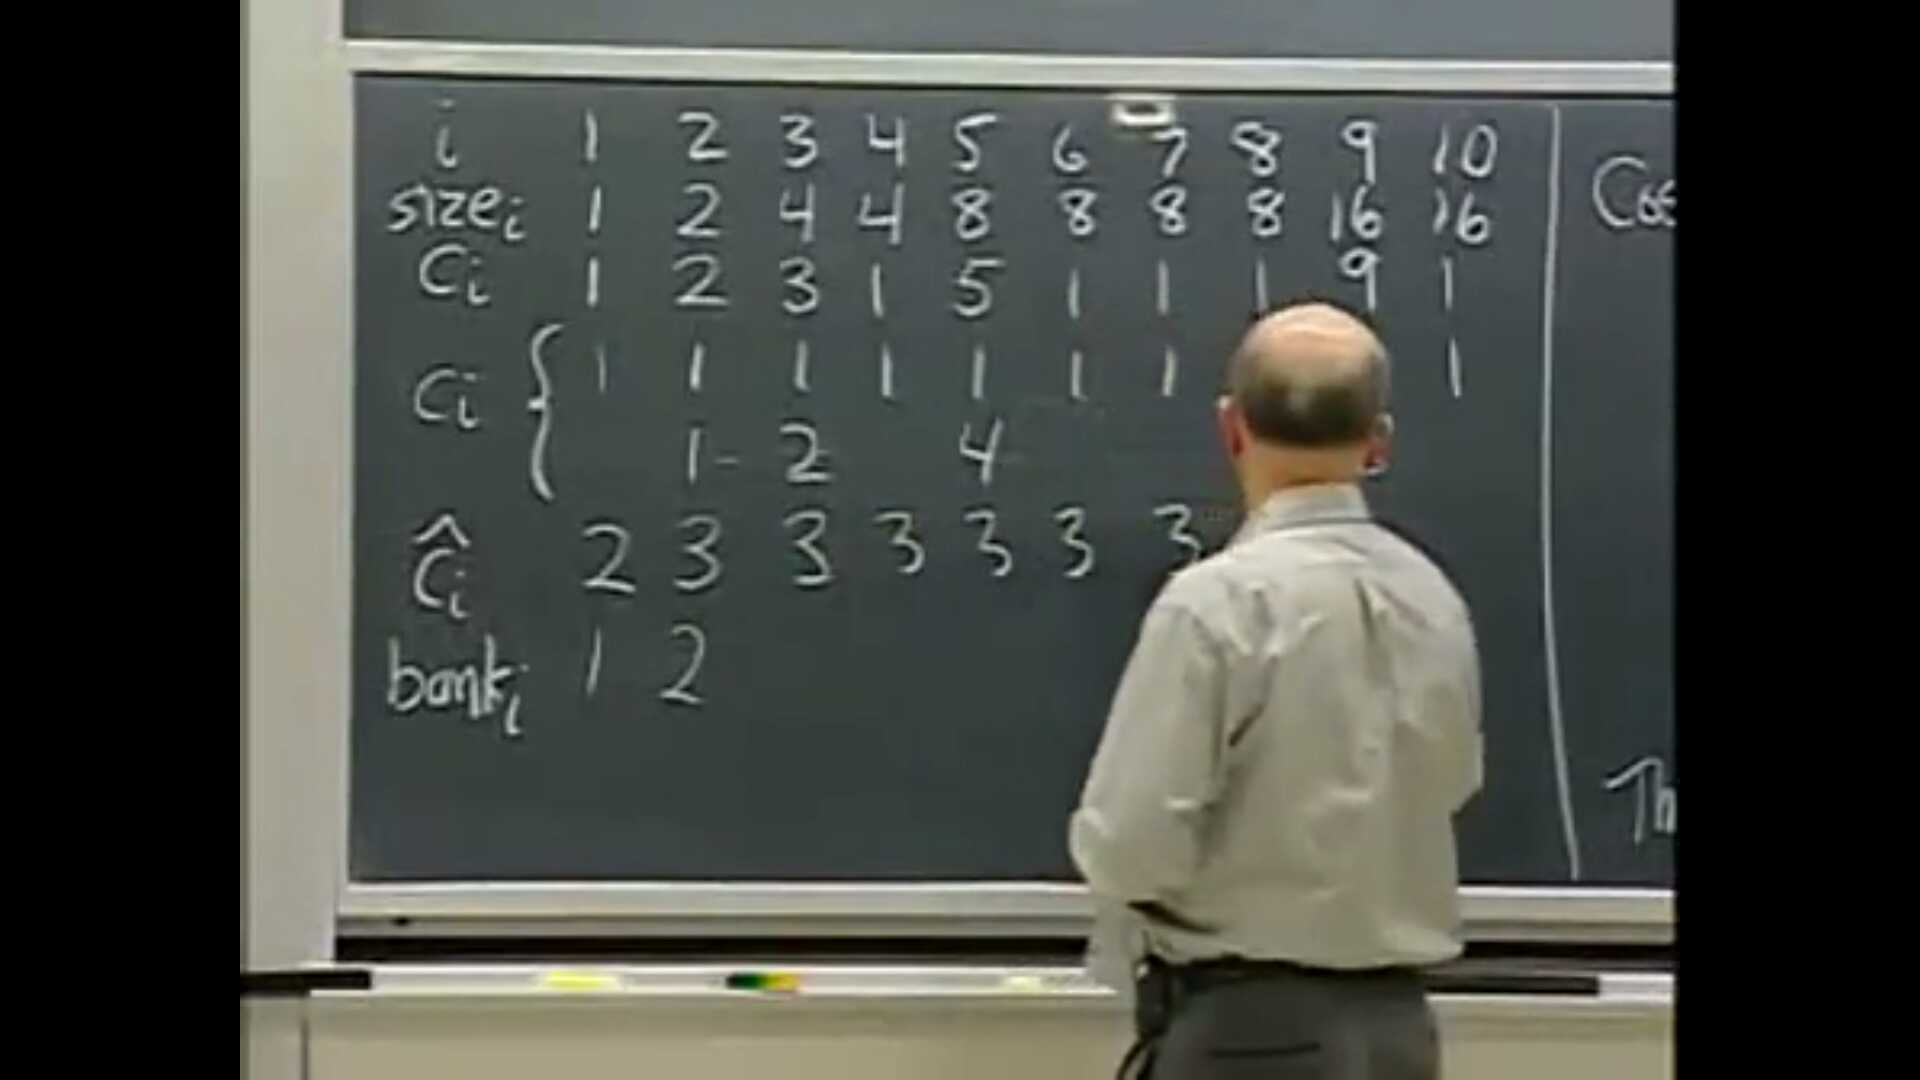 i 1 2 3 4 5 6 7 8 9 10
size i 1 2 4 4 8 8 8 8 16 16
Ci 1 2 3 1 5 1 1 1 9 1
Ci { 1 1 1 1 1 1 1 1
1 2 4
Ĉi 2 3 3 3 3 3 3
bank i 1 2